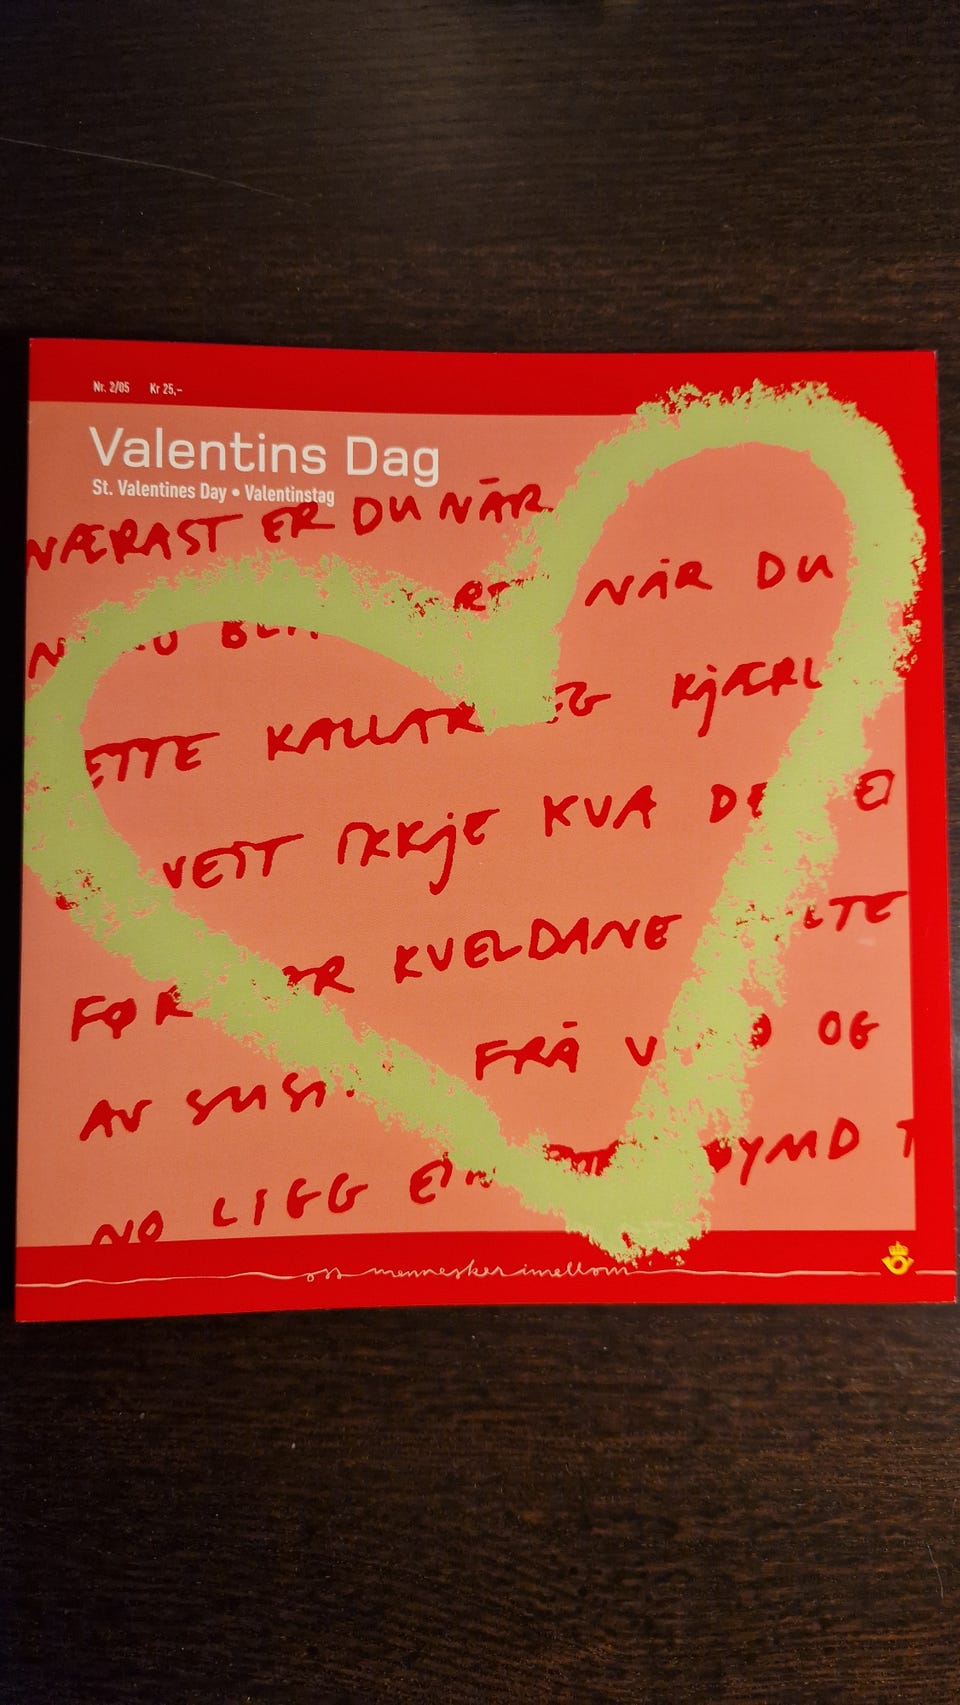 Nr. 2/05 Kr 25,-
Valentins Dag
St. Valentines Day • Valentinstag
NÆRAST ER DU NÅR
NÅR DU
KALLAR EG KJÆRL
VEIT IKKJE KVA DE E
FØR KVELDANE LTE
AV SUSI FRÅ V OG
NO LIGG EIN ØYMD T
oss mennesker imellom